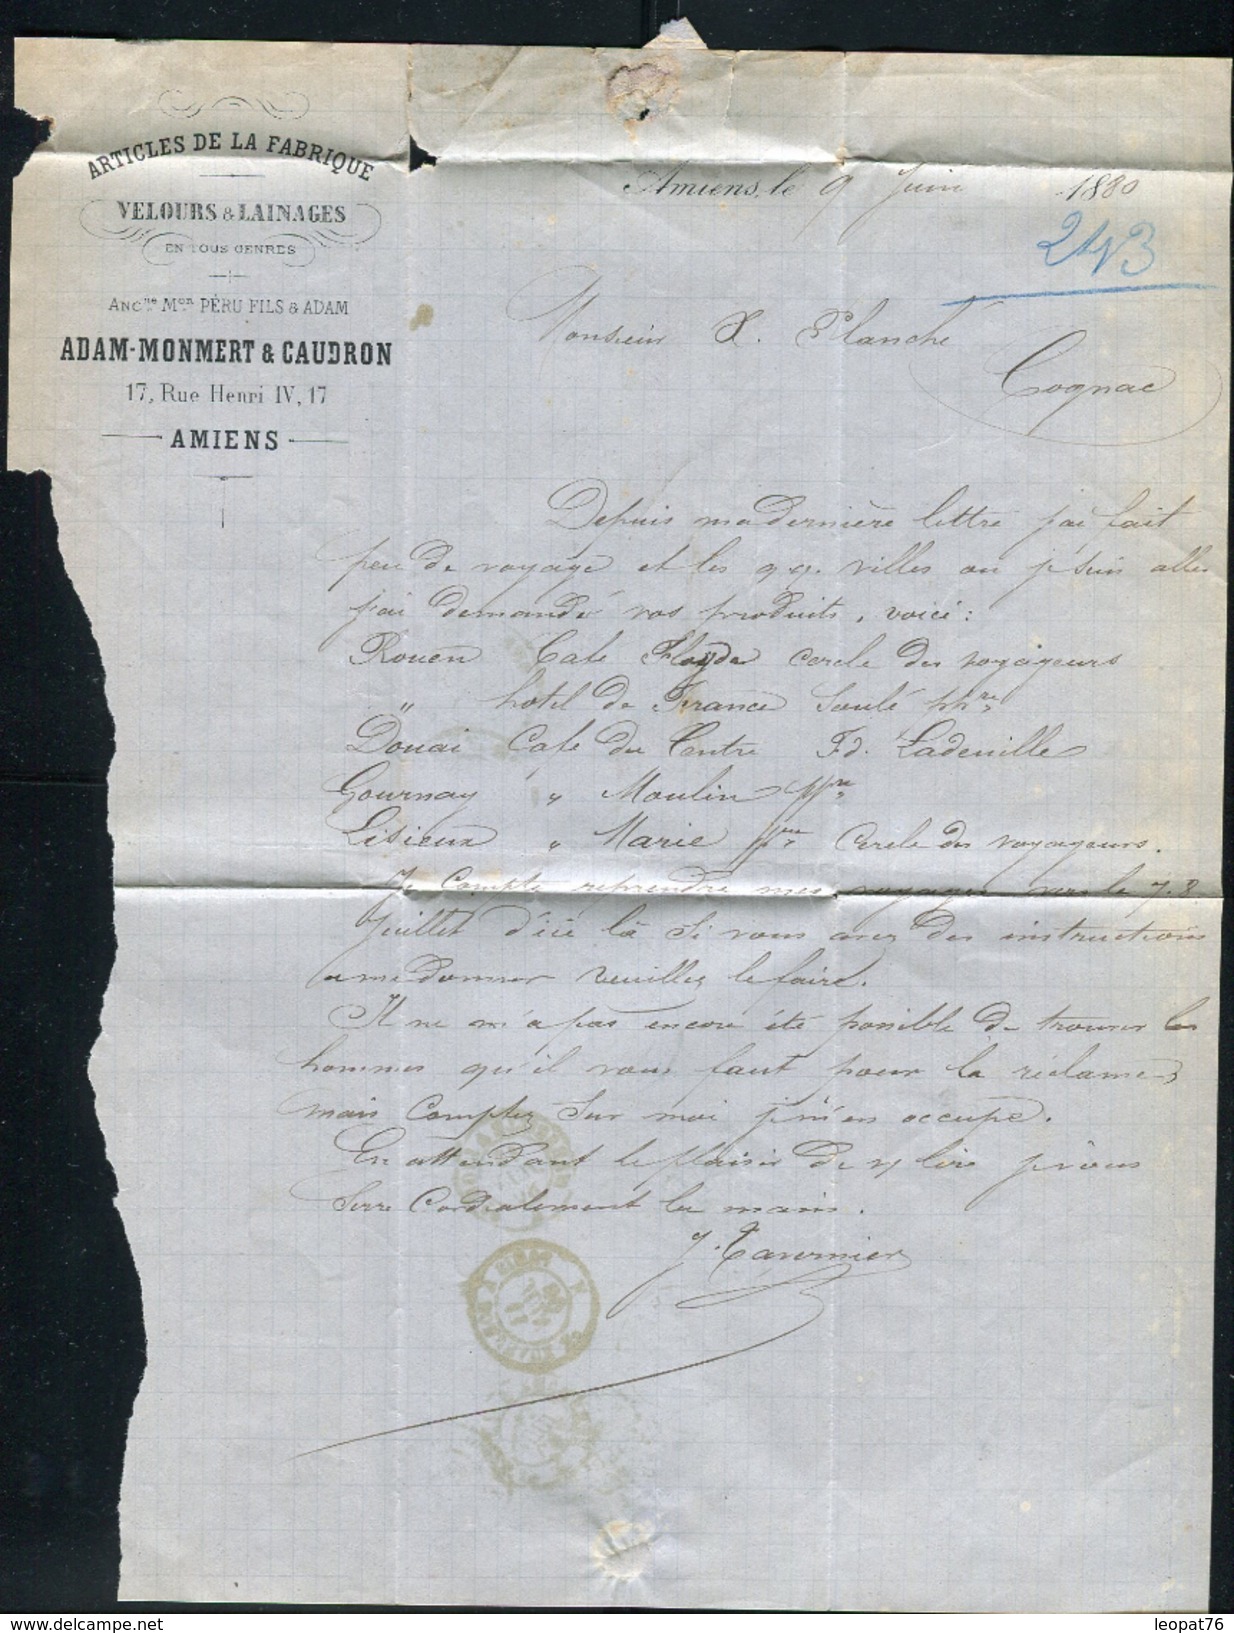 ARTICLES DE LA FABRIQUE
VELOURS & LAINAGES
EN TOUS GENRES
ANCne Mon PÉRU FILS & ADAM
ADAM-MONMERT & CAUDRON
17, Rue Henri IV, 17
AMIENS
Amiens, le 9 Juin 1880
243
Monsieur X. Planché
Cognac
Depuis ma dernière lettre j'ai fait
peu de voyage et les qq. villes ou j'suis aller
j'ai demandé vos produits, voici :
Rouen Café Floyde cercle des voyageurs
" hotel de France Soulé ppre
Douai Café du Centre Fd. Ladeuille
Gournay " Moulin ppre
Lisieux " Marie ppre Cercle des voyageurs.
Je compte reprendre mes voyages vers le 7.8
Juillet d'ici là si vous avez des instructions
a me donner veuillez le faire.
Il ne m'a pas encore été possible de trouver les
hommes qu'il vous faut pour la réclame
mais comptez sur moi j'm'en occupe.
En attendant le plaisir de v/ lire j'vous
serre cordialement la main.
J. Tavernier
leopat76